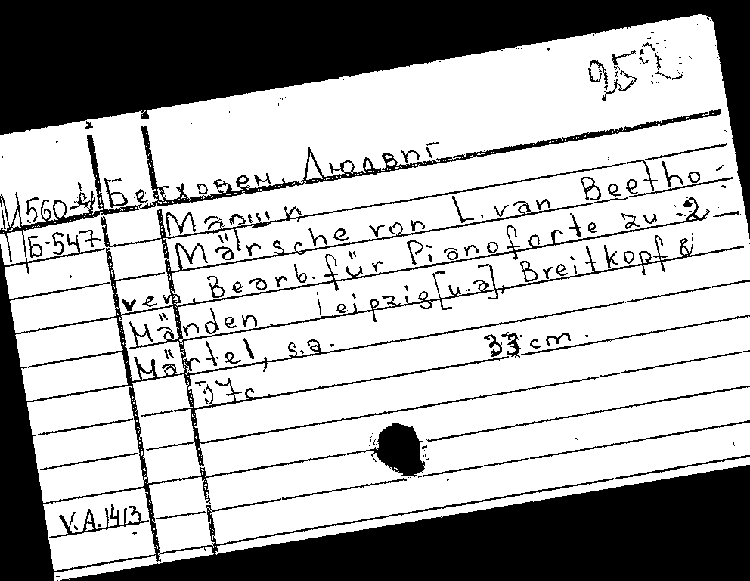 252
И560-4 Бетховен, Людвиг
П Б-547 Марши
Märsche von L. van Beetho-
ven. Bearb. für Pianoforte zu 2
Händen. Leipzig [u.a], Breitkopf &
Härtel, s.a.
37 с. 33 cm.
V.A. 1413